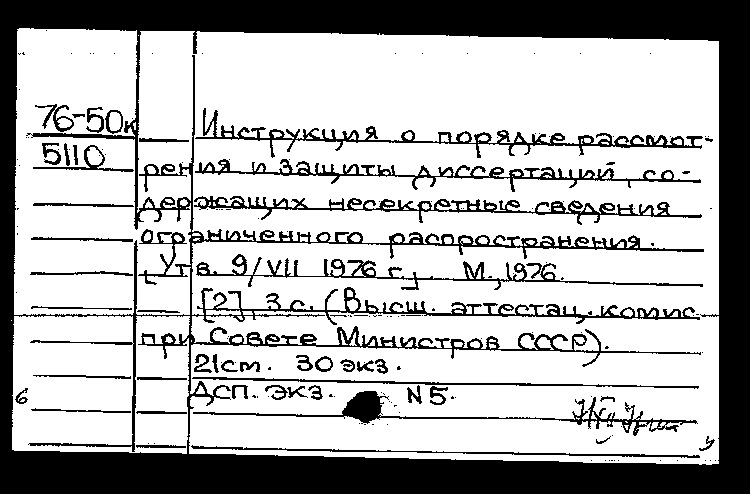 76-50к
5110
Инструкция о порядке рассмот-
рения и защиты диссертаций, со-
держащих несекретные сведения
ограниченного распространения.
[Утв. 9/VII 1976 г.]. М., 1976.
[2], 3 с. (Высш. аттестац. комис.
при Совете Министров СССР).
21 см. 30 экз.
Дсп. экз. N 5.
6